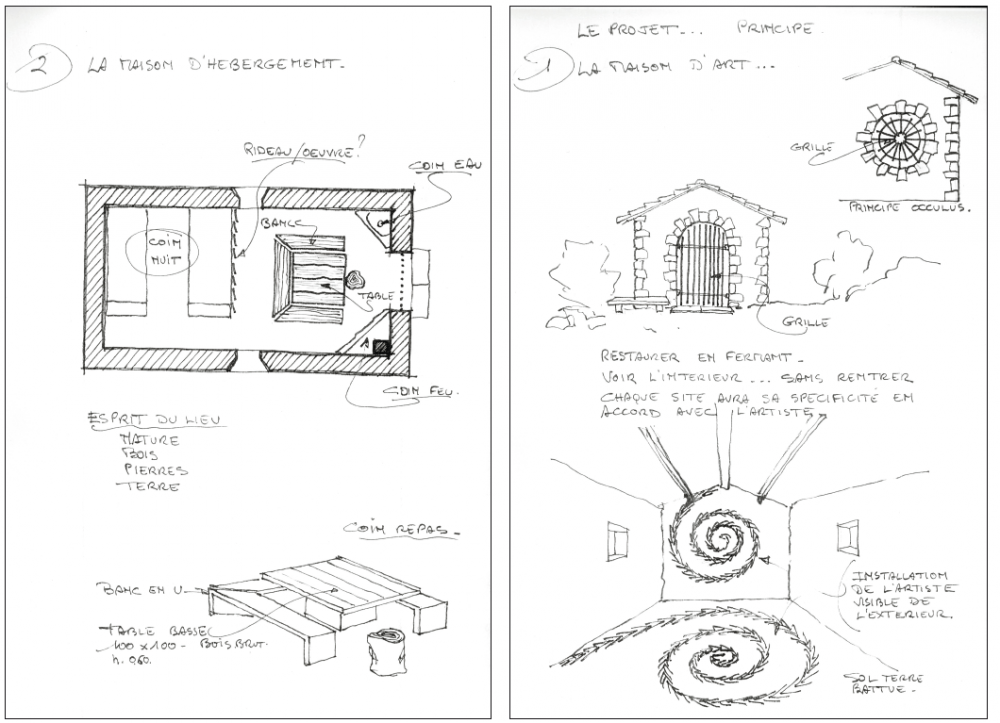 2
LA MAISON D'HEBERGEMENT.
RIDEAU/OEUVRE?
COIN EAU
BANC
COIN
NUIT
TABLE
COIN FEU.
ESPRIT DU LIEU
NATURE
BOIS
PIERRES
TERRE
COIN REPAS.
BANC EN U
TABLE BASSE
100 x 100 - BOIS BRUT.
h. 0,60.
LE PROJET... PRINCIPE.
1
LA MAISON D'ART...
GRILLE
PRINCIPE OCCULUS.
GRILLE
RESTAURER EN FERMANT.
VOIR L'INTERIEUR... SANS RENTRER
CHAQUE SITE AURA SA SPECIFICITÉ EN
ACCORD AVEC L'ARTISTE.
INSTALLATION
DE L'ARTISTE
VISIBLE DE
L'EXTERIEUR.
SOL TERRE
BATTUE.